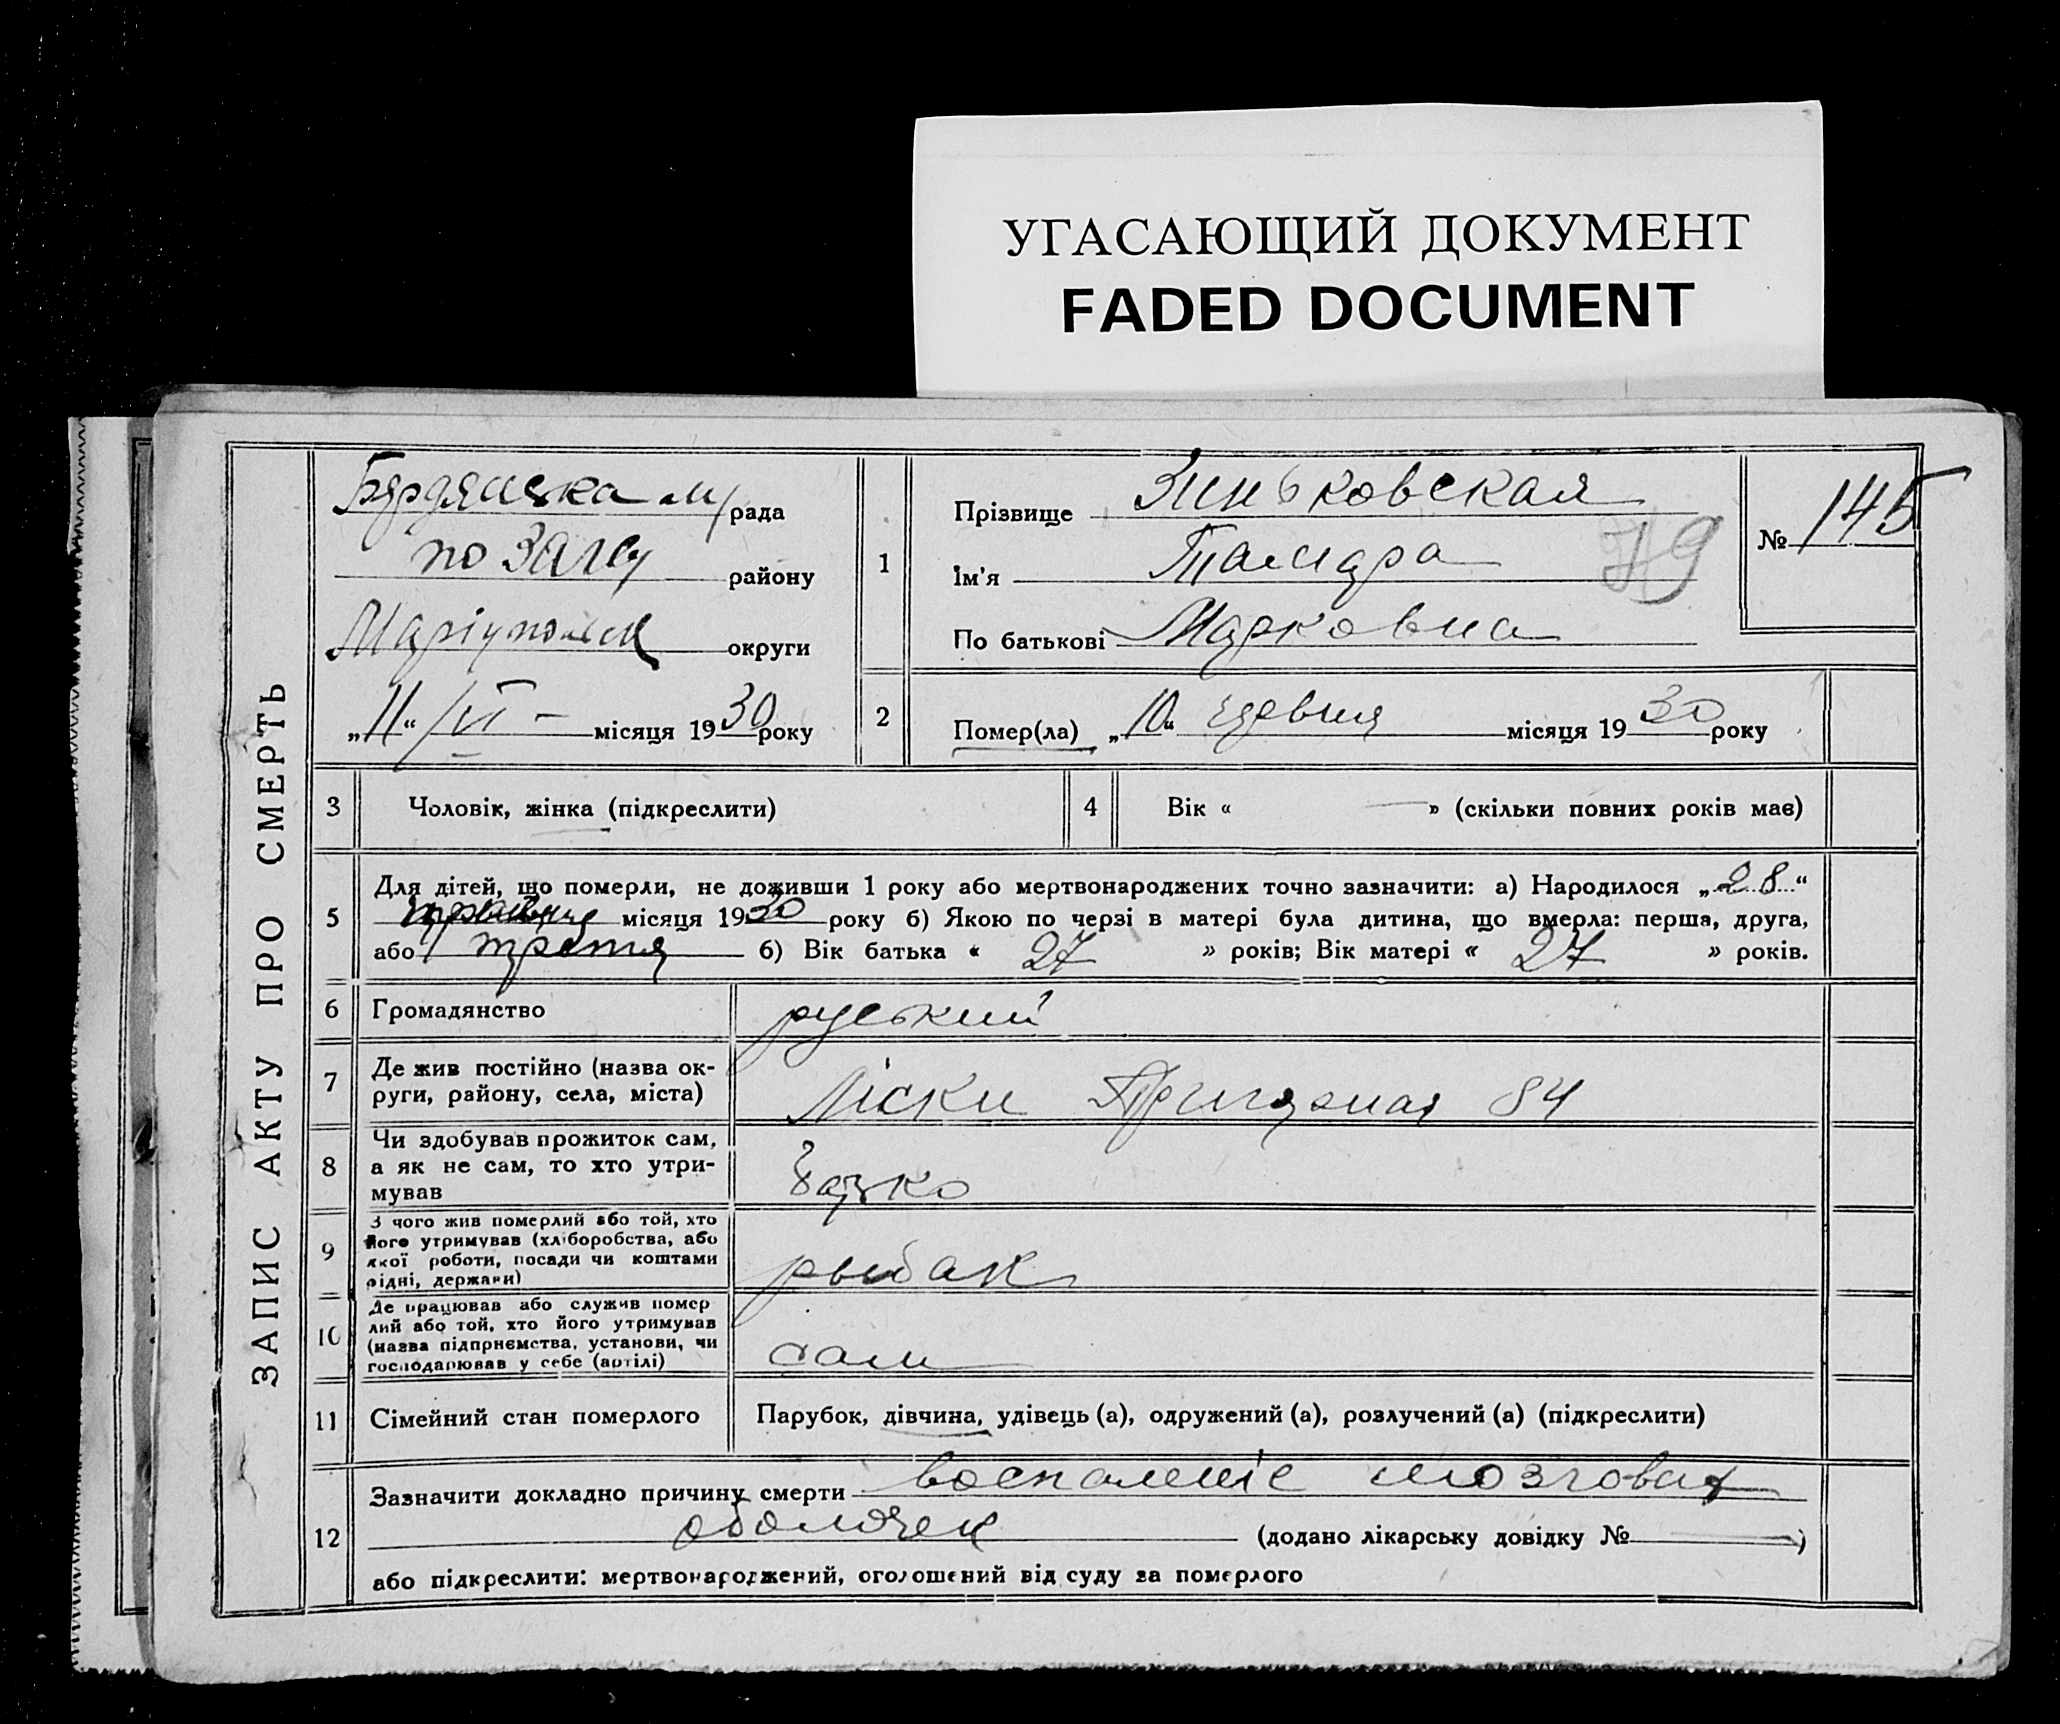 УГАСАЮЩИЙ ДОКУМЕНТ
FADED DOCUMENT
ЗАПИС АКТУ ПРО СМЕРТЬ
Бердянська м/рада
по Загсу району
Маріупольськ округи
„11“ /VI – місяця 1930 року
1
Прізвище Зиньковская
Ім'я Тамара
По батькові Марковна
79
№ 145
2
Помер(ла) „10“ червня місяця 1930 року
3 Чоловік, жінка (підкреслити)
4 Вік « — » (скільки повних років має)
5 Для дітей, що померли, не доживши 1 року або мертвонароджених точно зазначити: а) Народилося „28“
травня місяця 1930 року б) Якою по черзі в матері була дитина, що вмерла: перша, друга,
або третя б) Вік батька « 27 » років; Вік матері « 27 » років.
6 Громадянство руський
7 Де жив постійно (назва ок-
руги, району, села, міста) Ліски 84
8 Чи здобував прожиток сам,
а як не сам, то хто утри-
мував батько
9 З чого жив померлий або той, хто
його утримував (хліборобства, або
якої роботи, посади чи коштами
рідні, держави) рыбак
10 Де працював або служив помер
лий або той, хто його утримував
(назва підприємства, установи, чи
господарював у себе (артілі) сам
11 Сімейний стан померлого Парубок, дівчина, удівець (а), одружений (а), розлучений (а) (підкреслити)
12 Зазначити докладно причину смерти воспаленіе мозговых
оболочек (додано лікарську довідку № —)
або підкреслити: мертвонароджений, оголошений від суду за померлого